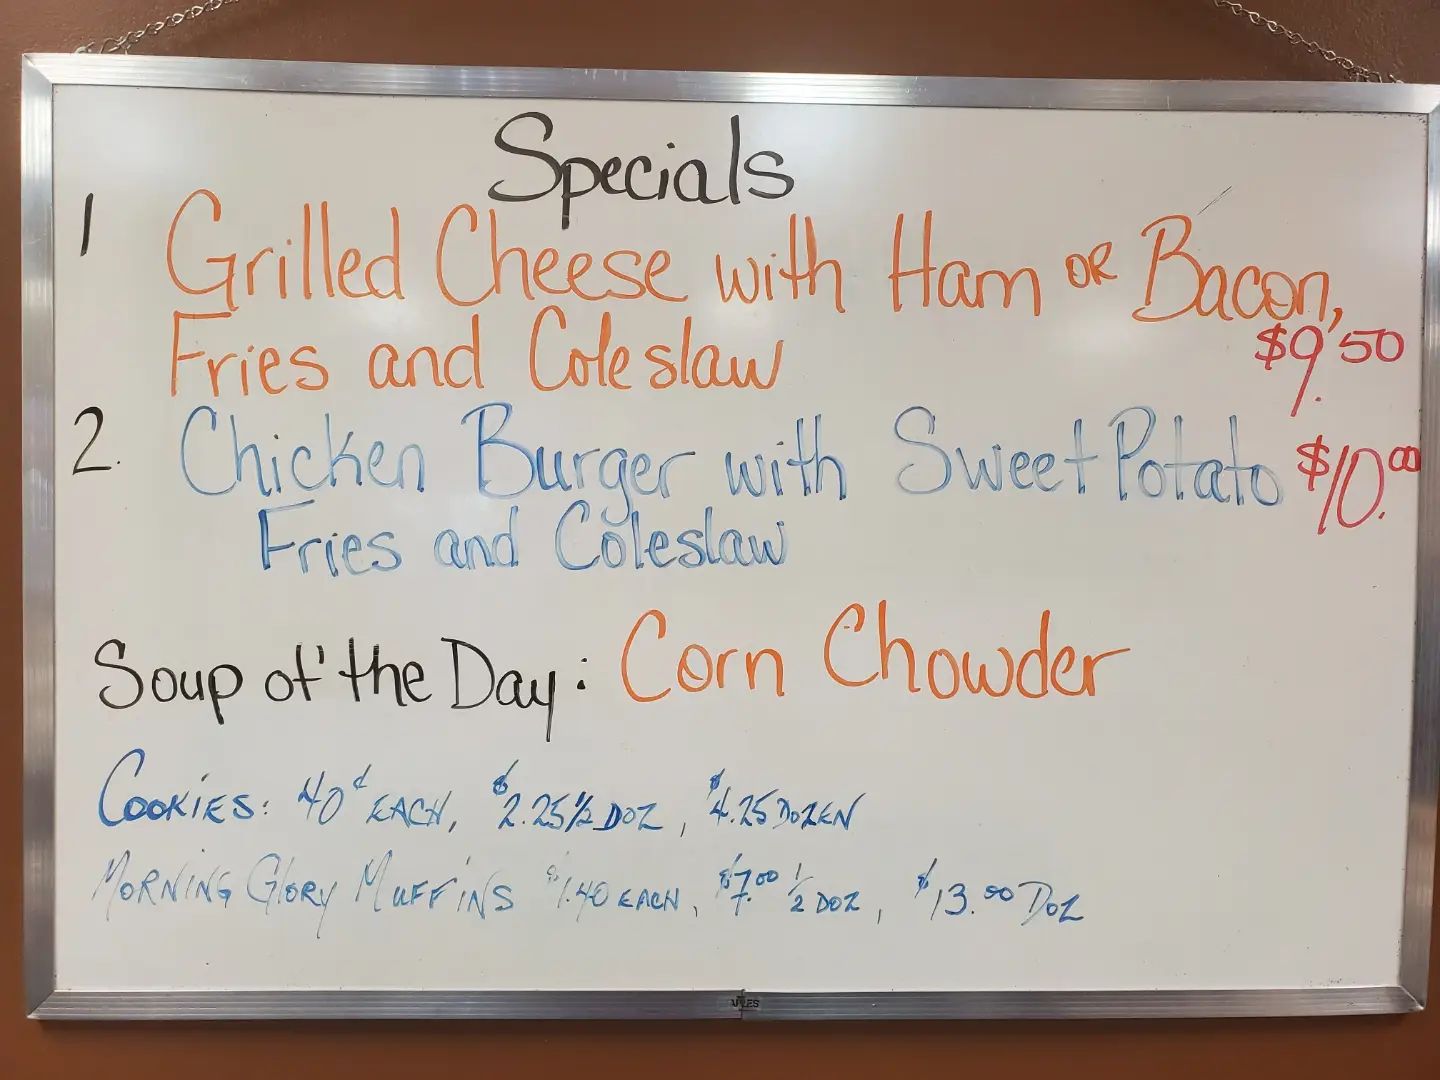 Specials
1 Grilled Cheese with Ham OR Bacon,
Fries and Coleslaw $9.50
2. Chicken Burger with Sweet Potato $10.00
Fries and Coleslaw
Soup of the Day: Corn Chowder
COOKIES: 40¢ EACH, $2.25 1/2 DOZ, $4.25 DOZEN
MORNING GLORY MUFFINS $1.40 EACH, $7.00 1/2 DOZ, $13.00 DOZ